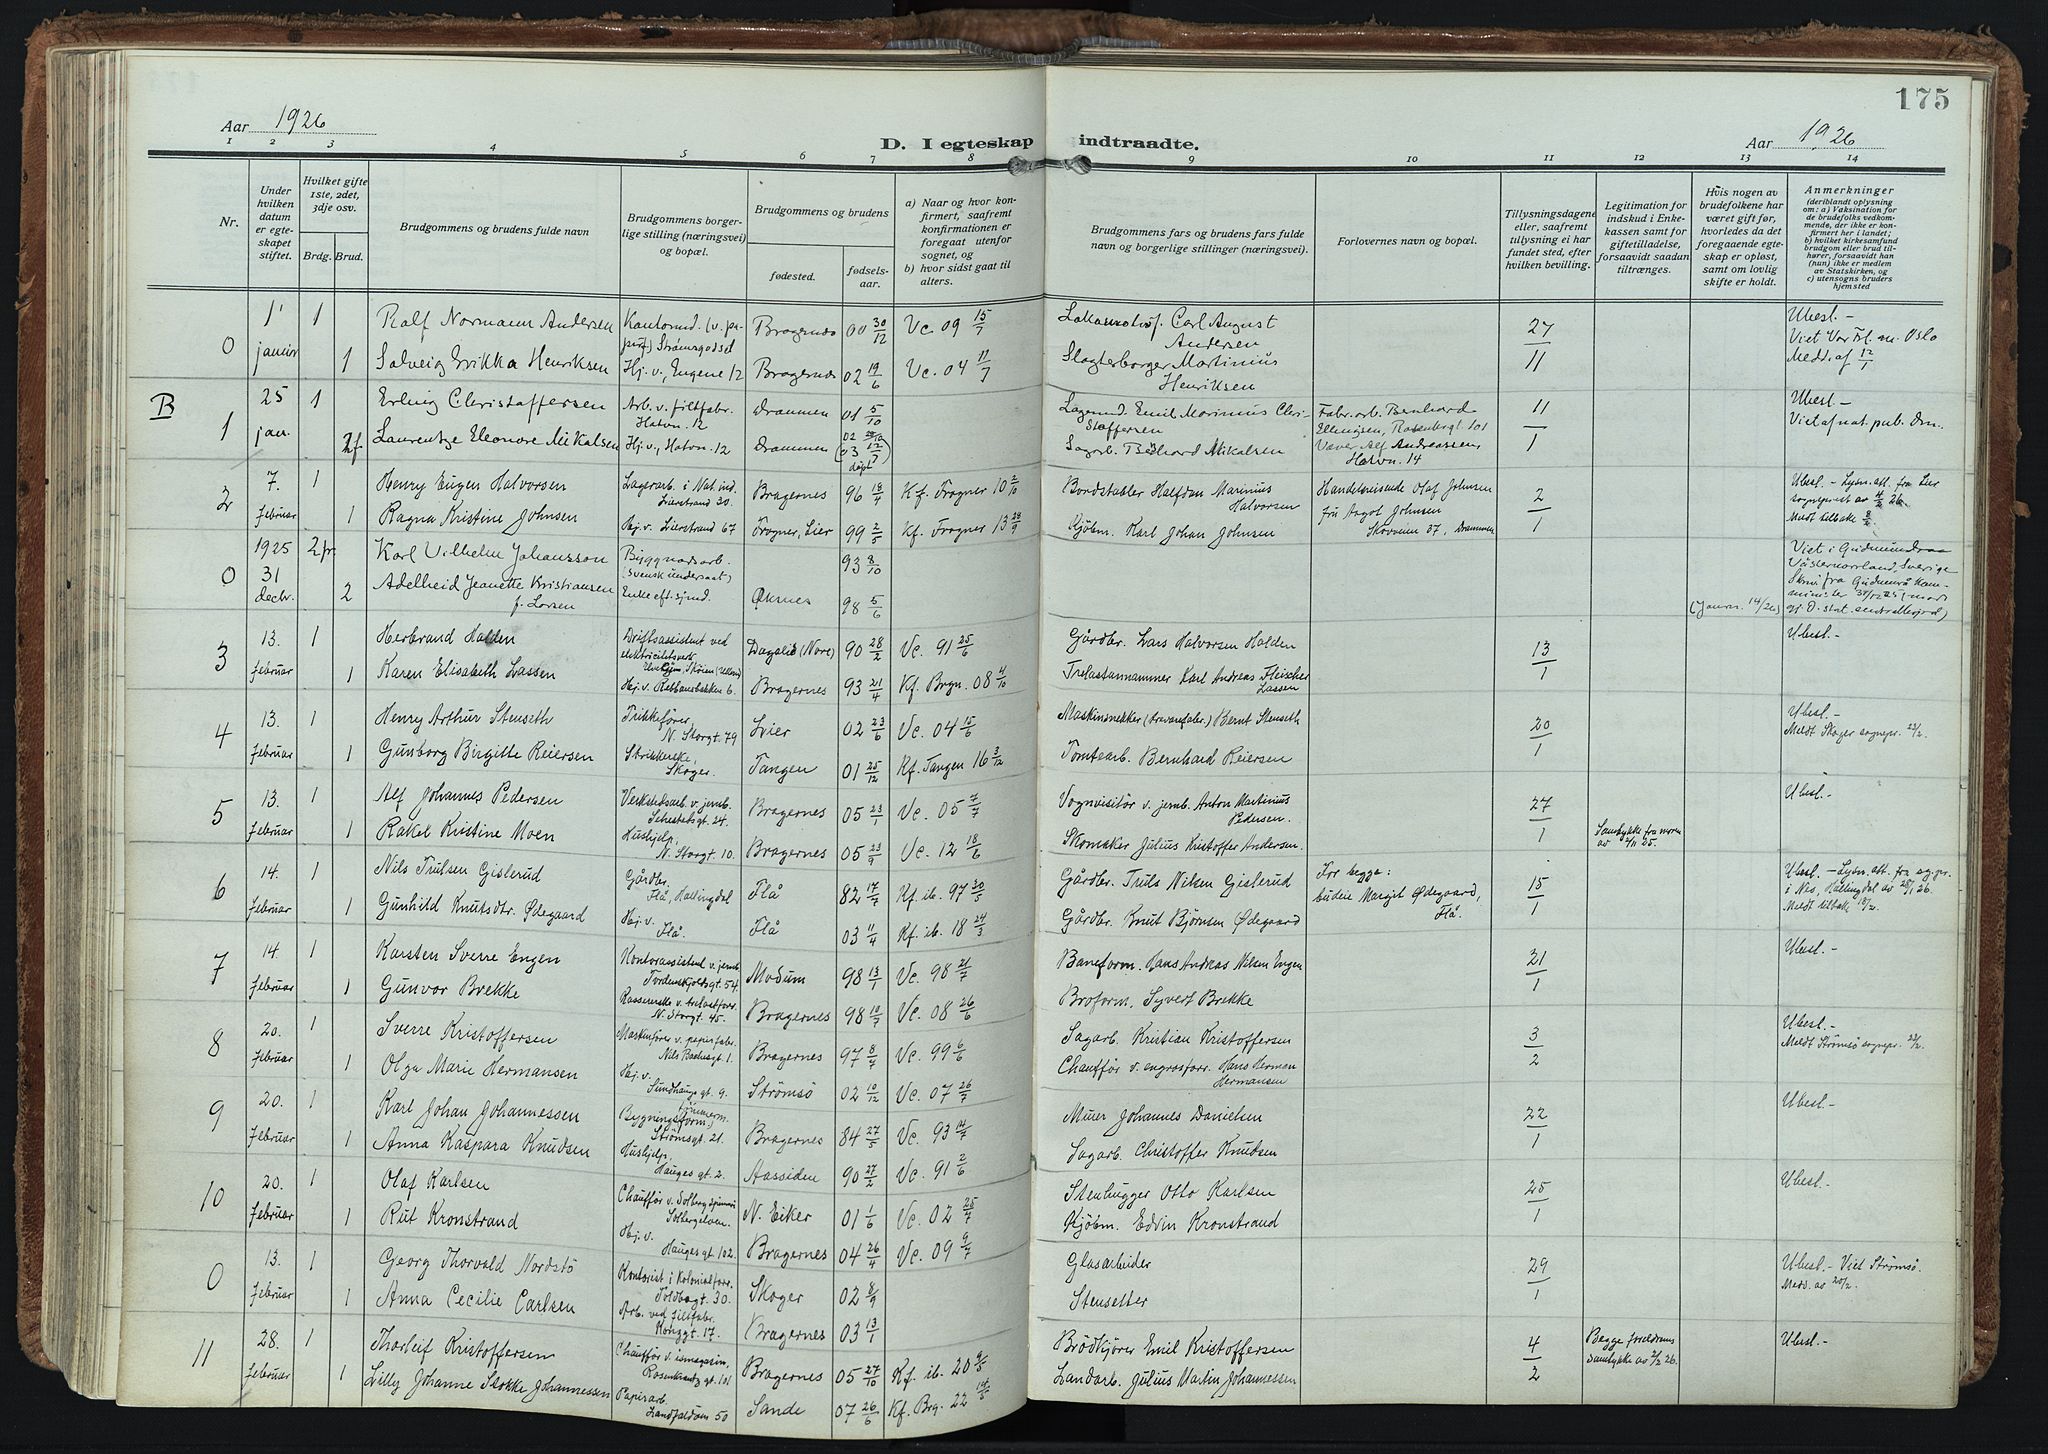 175
Aar 1926
D. I egteskap indtraadte.
Aar 1926
1 2 3 4 5 6 7 8 9 10 11 12 13 14
Nr.
Under hvilken datum er egteskapet stiftet.
Hvilket gifte 1ste, 2det, 3dje osv.
Brdg. Brud.
Brudgommens og brudens fulde navn
Brudgommens borgerlige stilling (næringsvei) og bopæl.
Brudgommens og brudens
fødested.
fødselsaar.
a) Naar og hvor konfirmert, saafremt konfirmationen er foregaat utenfor sognet, og
b) hvor sidst gaat til alters.
Brudgommens fars og brudens fars fulde navn og borgerlige stillinger (næringsvei).
Forlovernes navn og bopæl.
Tillysningsdagene eller, saafremt tillysning ei har fundet sted, efter hvilken bevilling.
Legitimation for indskud i Enkekassen samt for giftetilladelse, forsaavidt saadan tiltrænges.
Hvis nogen av brudefolkene har været gift før, hvorledes da det foregaaende egteskap er opløst, samt om lovlig skifte er holdt.
Anmerkninger (deriblandt oplysning om: a) Vaksination for de brudefolks vedkommende, der ikke er konfirmert her i landet; b) hvilket kirkesamfund brudgom eller brud tilhører, forsaavidt han (hun) ikke er medlem av Statskirken, og c) utensogns bruders hjemsted
0 1' januar 1 Ralf Normann Andersen Strømsgodset Bragernes 00 30/12 Vc. 09 15/7 Carl August Andersen 27/11 Ubesl.- Viet Vor Fr. m. Oslo Medd. af 12/1
1 Solveig Erikka Henriksen Hj. v., Engene 12 Bragernes 02 19/6 Vc. 04 11/7 Slagterborger Martinius Henriksen
B
1 25 jan. 1 Erling Christoffersen Arb. v. filtfabr. Hatvn. 12 Drammen 01 5/10 Lagermd. Emil Marinius Christoffersen Fabr. arb. Bernhard Ellingsen, Rosenbergt 101 11/1 Ubesl.- Viet af not. pub. Dmn.
2f Laurentze Eleonore Mikalsen Hj. v., Hatvn. 12 Drammen (03 12/7 døpt) Sagarb. Mikalsen Væver Alf Andreassen, Hatvn. 14
2 7. februar 1 Henry Eugen Halvorsen Lagerarb. i Nat. ind. Lierstrand 30. Bragernes 96 18/4 Kf. Frogner 10 2/10 Bordstabler Halfdan Marinius Halvorsen Handelsreisende Olaf Johnsen 2/1 Ubesl. - Lysn. att. fra Lier sogneprest av 4/2 26. Meldt tilbake 8/2.
1 Ragna Kristine Johnsen Hj. v. Lierstrand 67 Frogner, Lier 99 2/5 Kf. Frogner 13 28/9 Kjøbm. Karl Johan Johnsen fru Aagot Johnsen Skoveien 37, Drammen
0 1925 31 decbr. 2 fr. Karl Vilhelm Johansson Byggnadsarb. (svensk undersaat) 93 8/10 Viet i Gudmundraa Västernorrland, Sverige
2 Adelheid Jeanette Kristiansen f. Larsen Enke eft. sjmd. Øksnes 98 5/6 (Journ. 14/26)
3 13. februar 1 Herbrand Halden Driftsassistent ved elektricitetsverk Dagalid (Nore) 90 28/2 Vc. 91 25/6 Gårdbr. Lars Halvorsen Halden 13/1 Ubesl.-
1 Karen Elisabeth Lassen Hj. v. Rebbansbakken 6. Bragernes 93 21/4 Kf. Brgn. 08 4/10 Trelastannammer Karl Andreas Fleischer Lassen
4 13. februar 1 Henry Arthur Stenseth Trikkefører, N. Storgt. 79 Lier 02 23/6 Vc. 04 15/6 Maskinsnekker (travarefabr.) Bernt Stenseth 20/1 Ubesl.- Meldt Skoger sognepr. 23/2.
1 Gunborg Birgitte Reiersen Strikkerske, Skoger. Tangen 01 25/12 Kf. Tangen 16 3/12 Tomtearb. Bernhard Reiersen
5 13. februar 1 Alf Johannes Pedersen Verkstedsarb. v. jernb. Schestedsgt. 24. Bragernes 05 23/1 Vc. 05 7/7 Vognvisitør v. jernb. Anton Martinius Pedersen. 27/1 Ubesl.-
1 Rakel Kristine Moen Hushjelp, N. Storgt. 10. Bragernes 05 23/9 Vc. 12 18/6 Skomaker Julius Kristoffer Andersen. Samtykke fra moren av 2/11 25.
6 14. februar 1 Nils Trulsen Gislerud Gårdbr. Flå, Hallingdal Flå 82 17/7 Kf. ib. 97 30/5 Gårdbr. Truls Nilsen Gislerud For begge: budeie Margit Ødegaard, Flå. 15/1 Ubesl.- Lysn. att. fra sogpr. i Nes, Hallingdal av 25/1 26. Meldt tilbake 18/2.
1 Gunhild Knutsdtr. Ødegaard Hj. v. Flå. Flå 03 11/4 Kf. ib. 18 24/3 Gårdbr. Knut Bjørnsen Ødegaard
7 14. februar 1 Karsten Sverre Engen Kontorassistent v. jernb. Tordenskjoldsgt. 54. Modum 98 13/1 Vc. 98 21/7 Baneform. Hans Andreas Nilsen Engen 21/1 Ubesl.-
1 Gunvor Brekke N. Storgt. 45. Bragernes 98 10/7 Vc. 08 26/6 Broform. Syvert Brekke
8 20. februar 1 Sverre Kristoffersen Maskinfører v. papirfabr. Nils Bachesgt. 1. Bragernes 97 8/7 Vc. 99 6/6 Sagarb. Kristian Kristoffersen 3/2 Ubesl.- Meldt Strømsø sognepr. 23/2.
1 Olga Marie Hermansen Hj. v. Sundhaugsgt. 9. Strømsø 02 10/12 Vc. 07 26/7 Chauffør v. engrosforr. Hans Herman Hermansen
9 20. februar 1 Karl Johan Johannessen Bygningsform., tømmerm. Strømsgt. 21. Bragernes 84 27/5 Vc. 93 14/7 Murer Johannes Danielsen 22/1 Ubesl.-
1 Anna Kaspara Knudsen Hushjelp, Haugesgt. 2. Aassiden 90 27/2 Vc. 91 2/6 Sagarb. Christoffer Knudsen
10 20. februar 1 Olaf Karlsen Chauffør v. Solbergspinneri Solbergelven. N. Eiker 01 1/6 Vc. 02 25/7 Stenhugger Otto Karlsen 25/1 Ubesl.-
1 Rut Kronstrand Hj. v. Hauges gt. 102. Bragernes 04 26/4 Vc. 09 9/7 Kjøbm. Edvin Kronstrand
0 13. februar 1 Georg Thorvald Nordstø Kontorist i Kolonialforr. Toldbogt. 30. Skoger 02 8/9 Glasarbeider 29/1 Ubesl.- Viet Strømsø. Med. av 20/2.
1 Anna Cecilie Carlsen Arb. ved filtfabr. Konggt. 17. Bragernes 03 13/1 Stensetter
11 28. februar 1 Thorleif Kristoffersen Chauffør v. ismagasin, Rosenkrantzgt. 101 Bragernes 05 27/10 Kf. ib. 20 9/5 Brødkjører Emil Kristoffersen 4/2 Begge foreldrenes samtykke av 2/2 26. Ubesl.-
1 Lilly Johanne Stokke Johannessen Papirarb. Landfaldøen 50 Sande 07 26/6 Kf. Brg. 22 14/5 Landarb. Julius Martin Johannessen